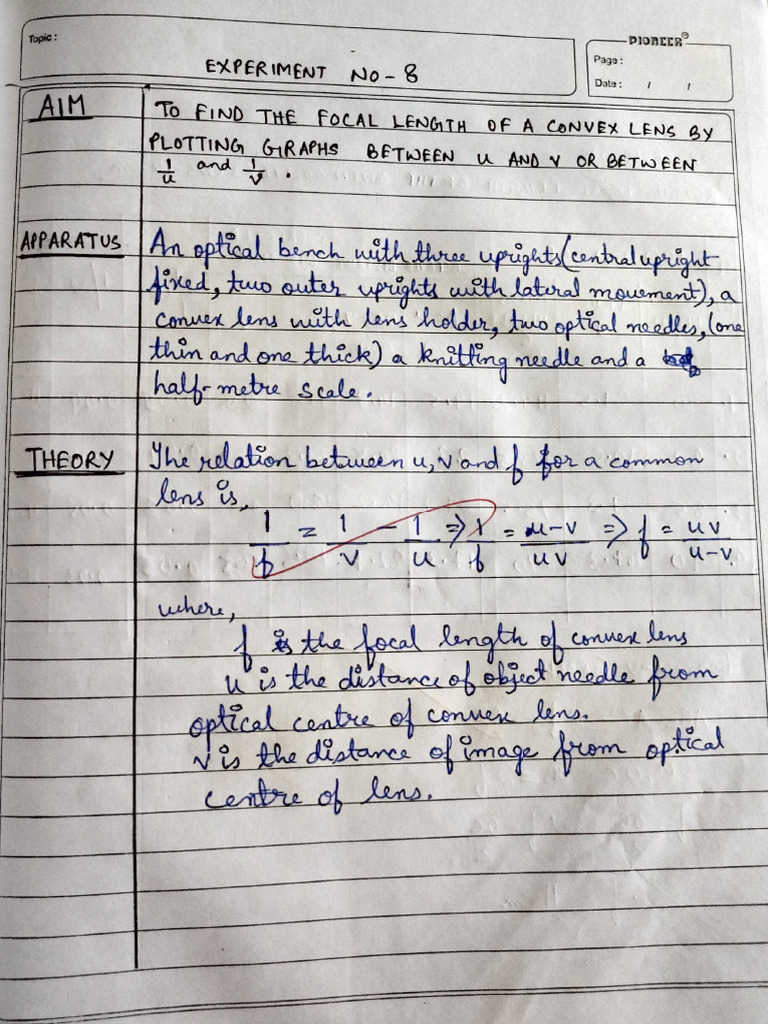 Topic :
PIONEER®
Page :
Date : / /
EXPERIMENT NO - 8
AIM
TO FIND THE FOCAL LENGTH OF A CONVEX LENS BY
PLOTTING GRAPHS BETWEEN u AND v OR BETWEEN
1/u and 1/v .
APPARATUS
An optical bench with three uprights (central upright
fixed, two outer uprights with lateral movement), a
convex lens with lens holder, two optical needles, (one
thin and one thick) a knitting needle and a
half-metre scale.
THEORY
The relation between u, v and f for a common
lens is,
1/f = 1/v - 1/u => 1/f = u-v/uv => f = uv/u-v
where,
f is the focal length of convex lens
u is the distance of object needle from
optical centre of convex lens.
v is the distance of image from optical
centre of lens.